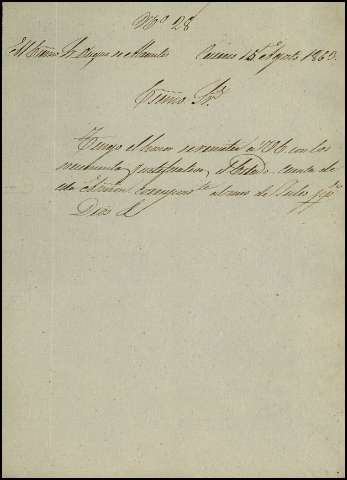 Nº 28
Al Exmo Sr. Duque de Caracas 15 Agosto 1863.
Exmo Sr.
Tengo el honor de remitir á V.E. con los
documentos justificativos, el Estado cuenta de
esta correspondte al mes de Julio ppº
Dios &